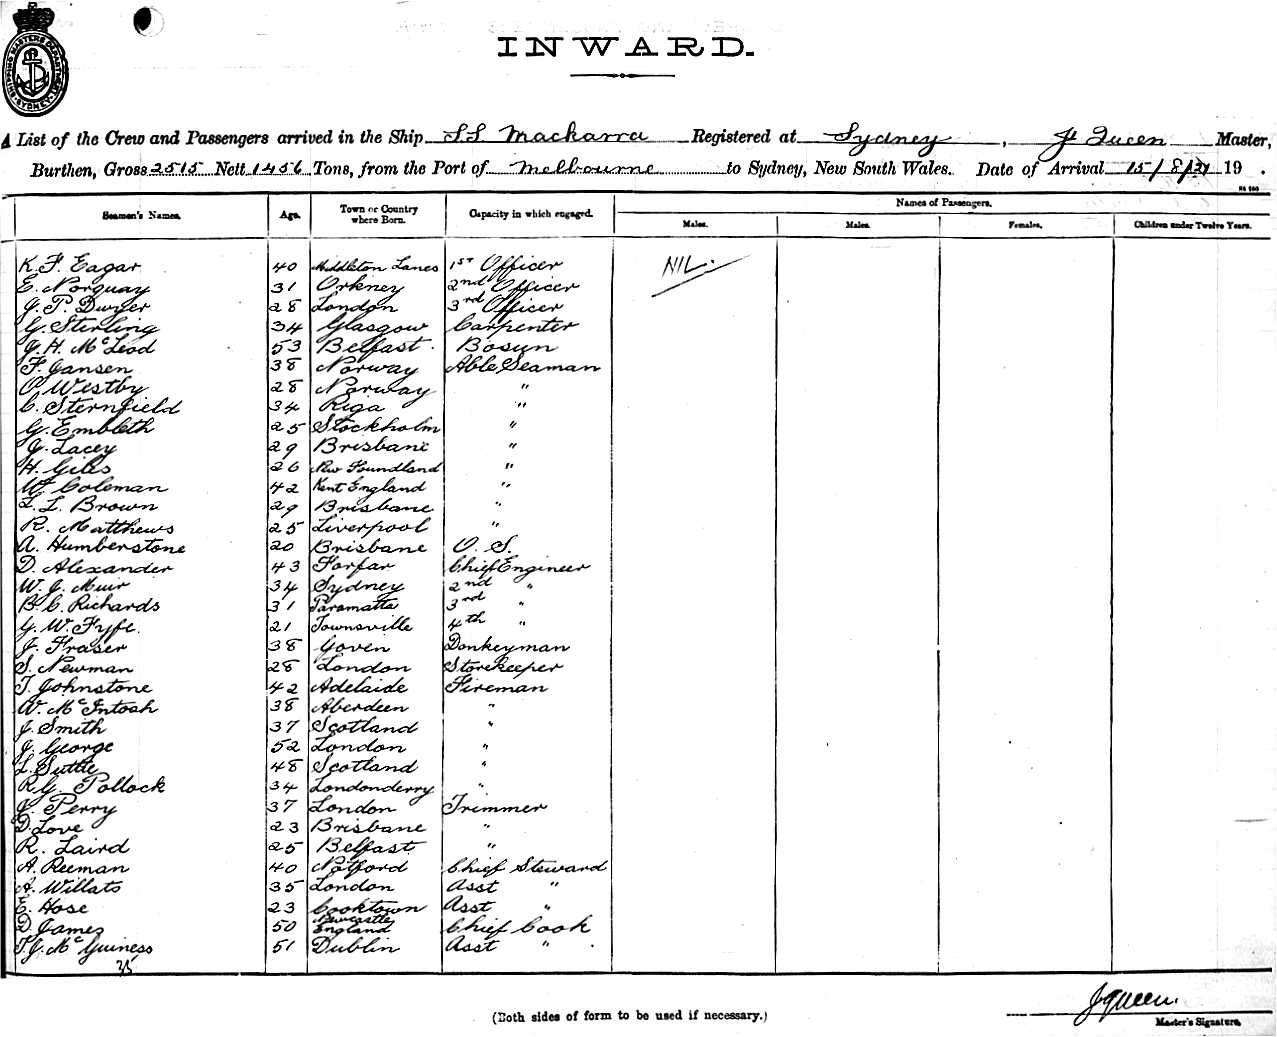 SHIPPING MASTERS DEPARTMENT SYDNEY
INWARD.
A List of the Crew and Passengers arrived in the Ship SS Mackarra Registered at Sydney, J Queen Master,
Burthen, Gross 2515 Nett 1456 Tons, from the Port of Melbourne to Sydney, New South Wales. Date of Arrival 15/8/21 19 .
Seamen's Names. Age. Town or Country where Born. Capacity in which engaged. Names of Passengers.
Males. Males. Females. Children under Twelve Years.
K. F. Eagar 40 Middleton Lancs 1st Officer NIL.
E. Norquay 31 Orkney 2nd Officer
J. P. Dwyer 28 London 3rd Officer
G. Sterling 34 Glasgow Carpenter
J. H. McLeod 53 Belfast. Bosun
F. Jansen 38 Norway Able Seaman
O Westby 28 Norway "
C. Sternfield 34 Riga "
G. Embleth 25 Stockholm "
J. Lacey 29 Brisbane "
H. Giles 26 New Foundland "
W. Coleman 42 Kent England "
L. L. Brown 29 Brisbane "
R. Matthews 25 Liverpool "
A. Humberstone 20 Brisbane O. S.
D. Alexander 43 Forfar Chief Engineer
W. J. Muir 34 Sydney 2nd "
B. C. Richards 31 Paramatta 3rd "
G. W. Fyfe. 21 Townsville 4th "
J. Fraser 38 Goven Donkeyman
S. Newman 28 London Storekeeper
T. Johnstone 42 Adelaide Fireman
W. McIntosh 38 Aberdeen "
J. Smith 37 Scotland "
J. George 52 London "
L. Suttie 48 Scotland "
R. G. Pollock 34 Londonderry "
J. Perry 37 London Trimmer
D. Love 23 Brisbane "
R. Laird 25 Belfast "
A. Reeman 40 Chief Steward
A. Willats 35 London Asst "
E. Hose 23 Cooktown Asst "
D. James 50 Newcastle England Chief Cook
T. J. McGuiness 51 Dublin Asst " .
35
J Queen.
(Both sides of form to be used if necessary.)
Master's Signature.